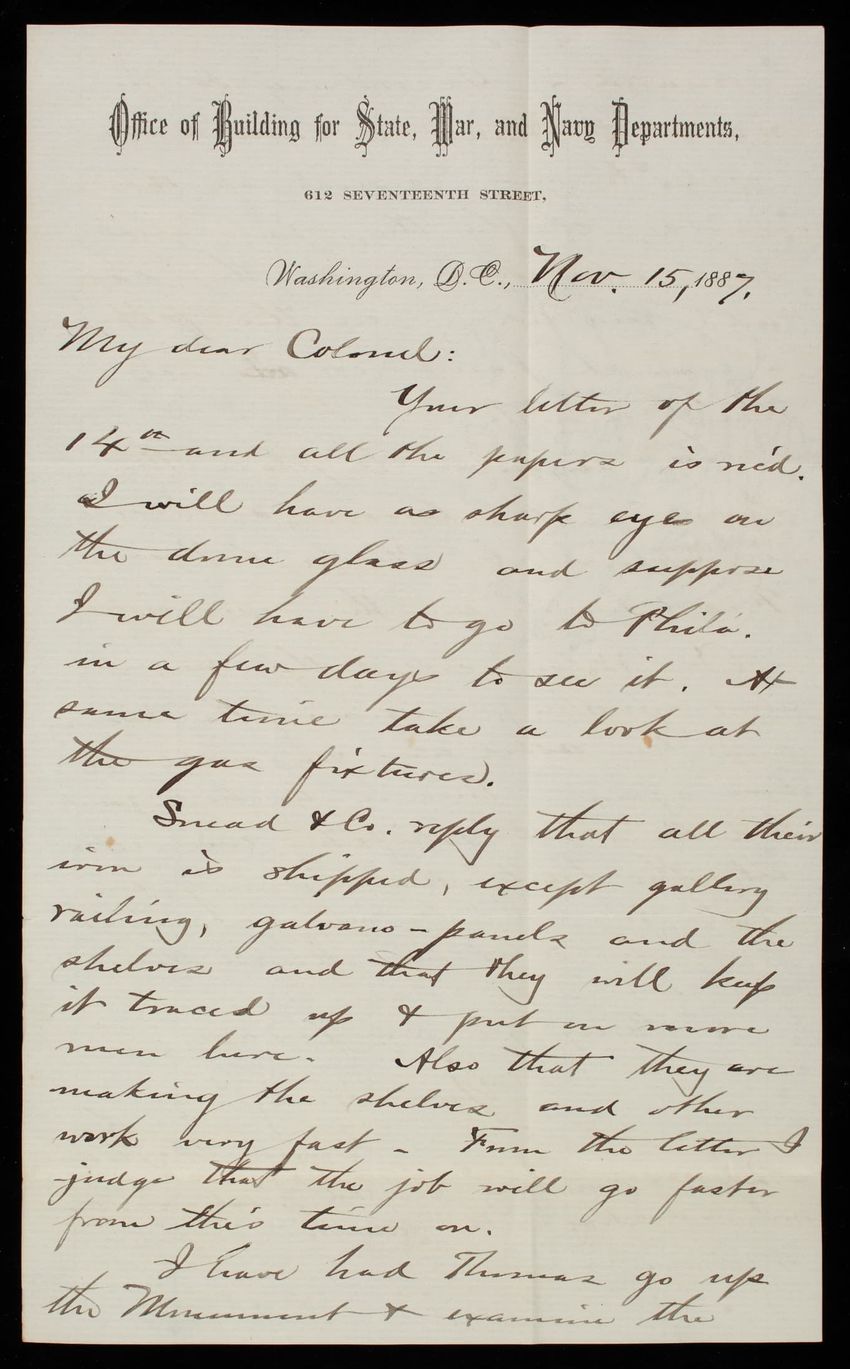 Office of Building for State, War, and Navy Departments,
612 SEVENTEENTH STREET,
Washington, D.C., Nov. 15, 1887.
My dear Colonel:
Your letter of the
14th and all the papers is rec'd.
I will have a sharp eye on
the dome glass and suppose
I will have to go to Phila.
in a few days to see it. At
same time take a look at
the gas fixtures.
Snead & Co. reply that all their
iron is shipped, except gallery
railing, galvano-panels and the
shelves and that they will keep
it traced up & put on more
men here. Also that they are
making the shelves and other
work very fast - From the letter I
judge that the job will go faster
from this time on.
I have had Thomas go up
the Monument & examine the